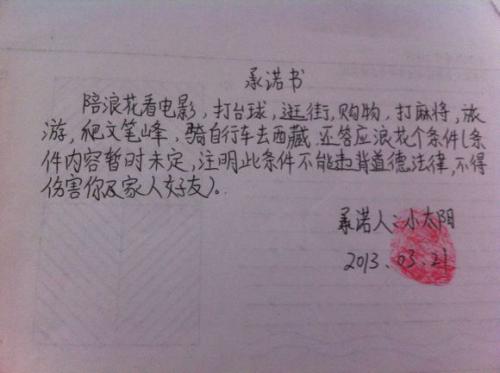 承诺书
陪浪花看电影，打台球，逛街，购物，打麻将，旅
游，爬文笔峰，骑自行车去西藏.还答应浪花个条件(条
件内容暂时未定，注明此条件不能违背道德法律，不得
伤害你及家人好友)。
承诺人:小太阳
2013.03.21